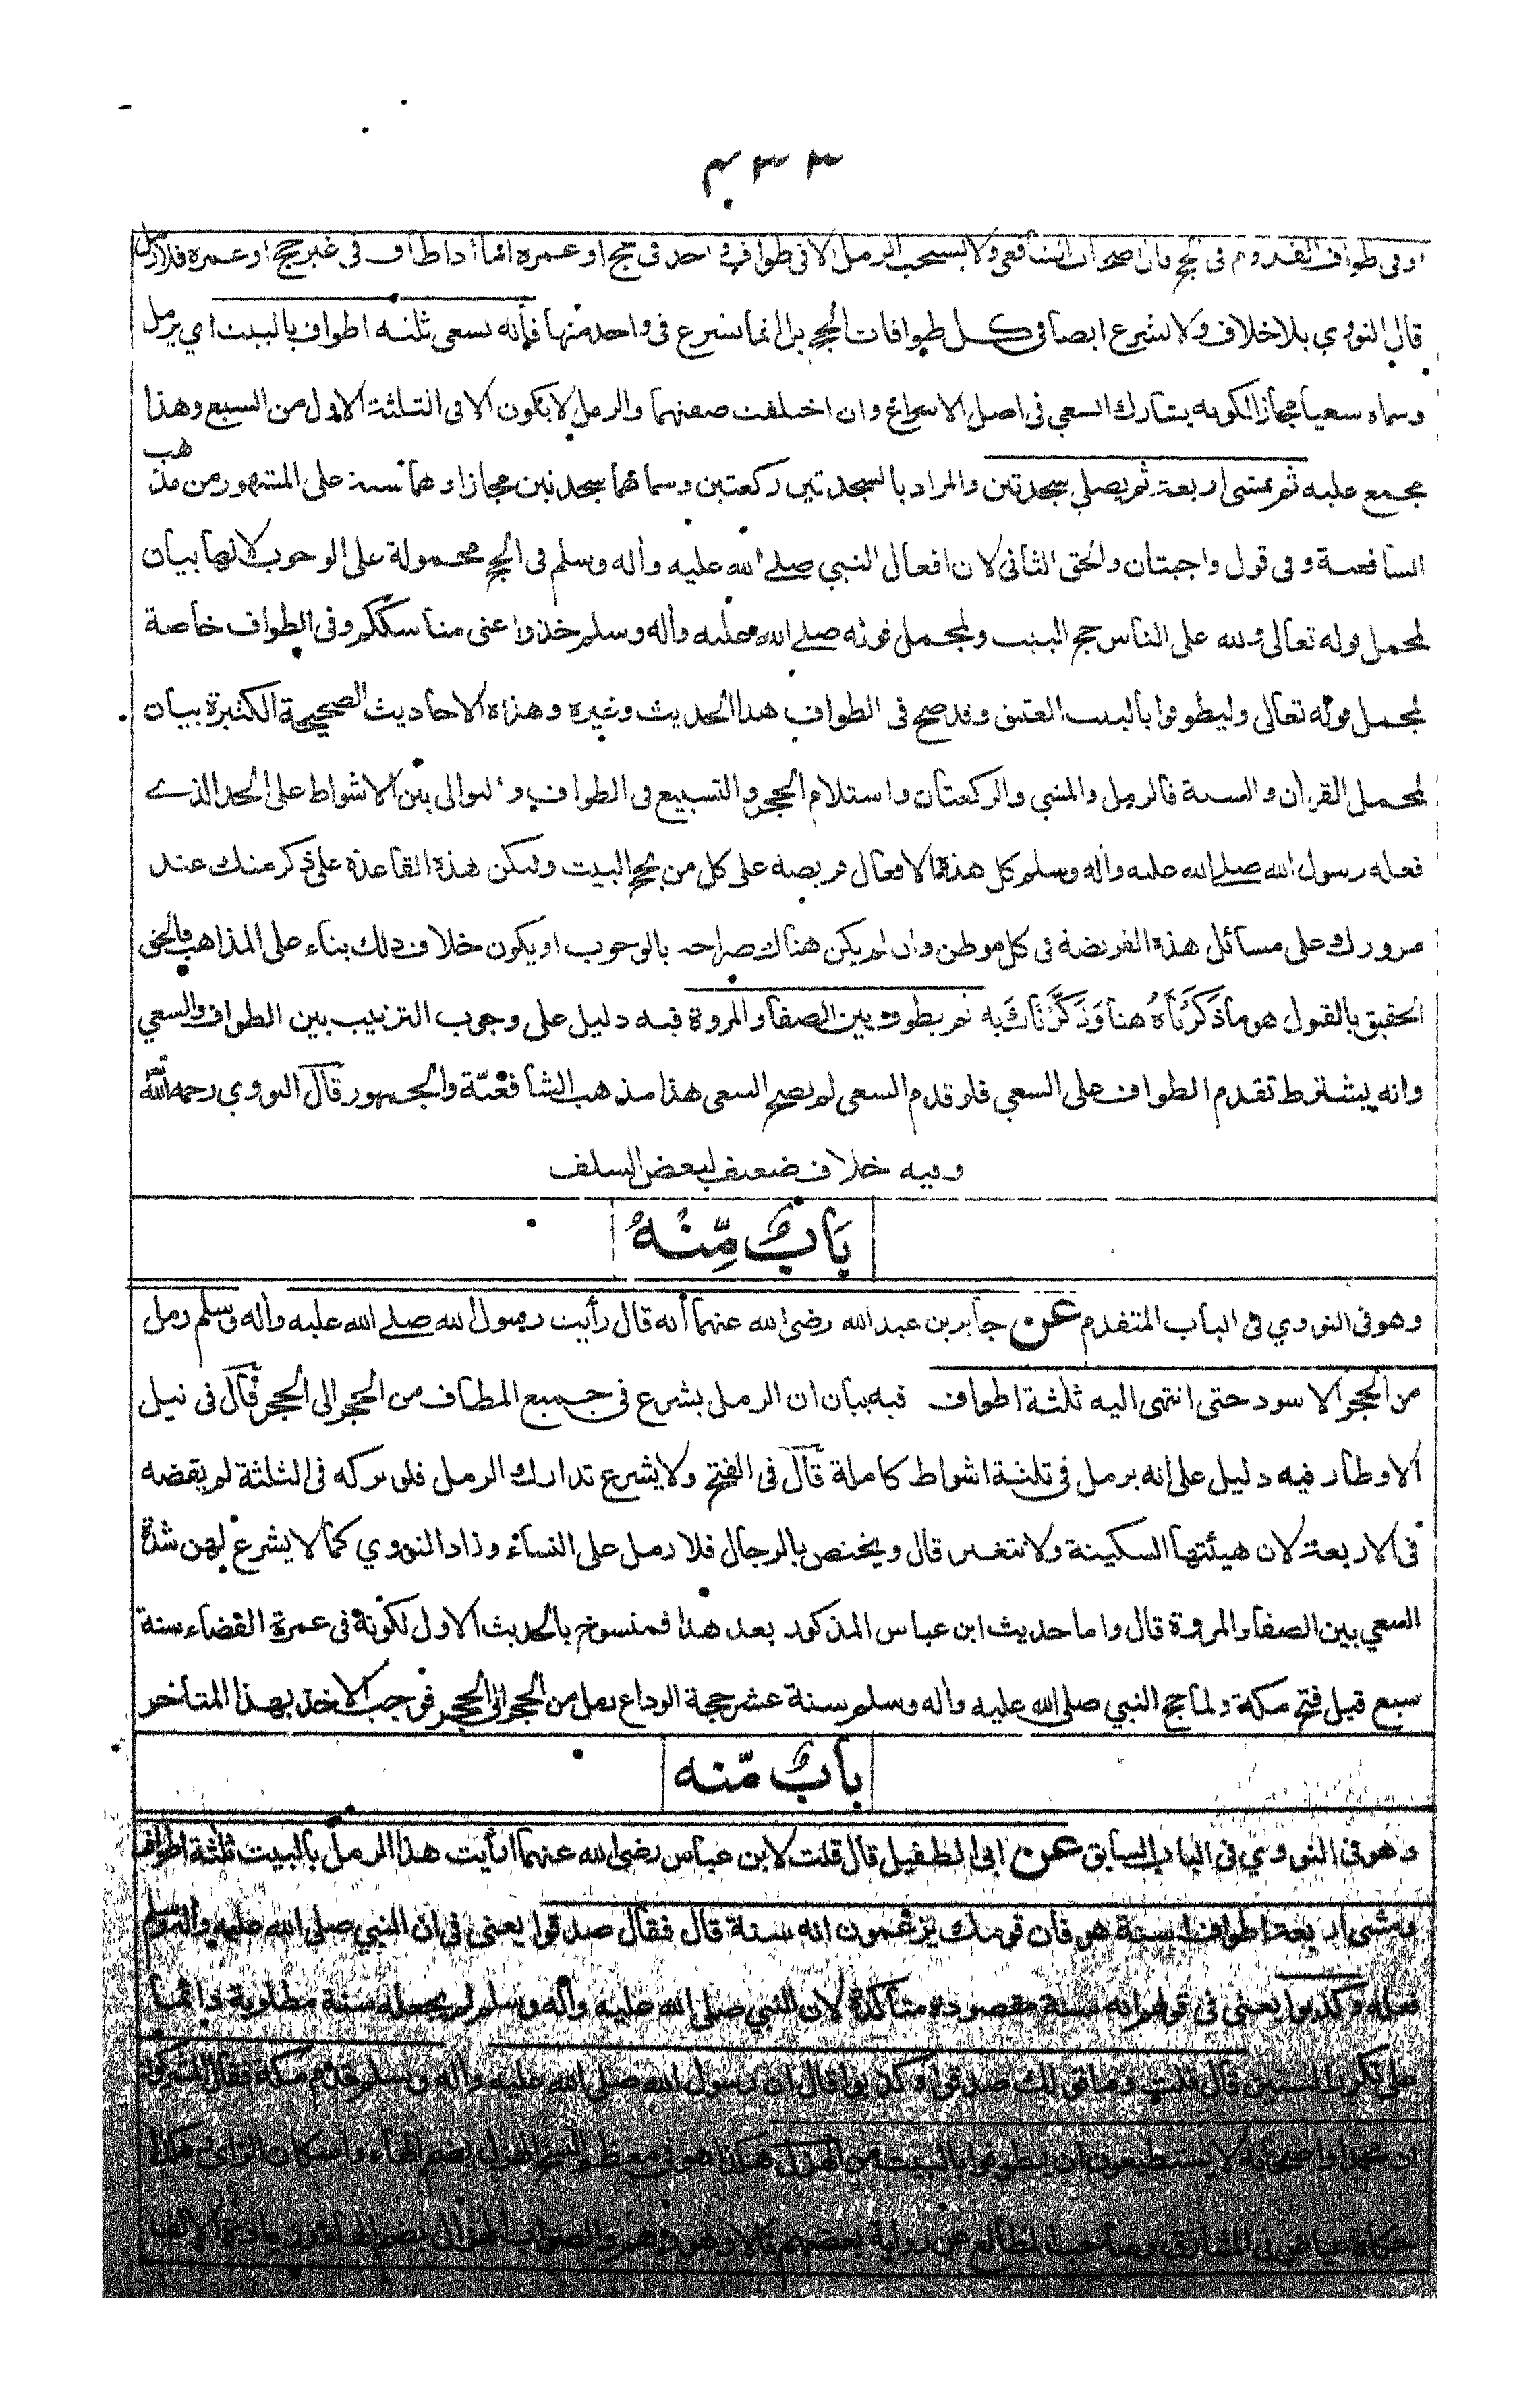 ٣٣٤
او فى طواف القدوم فى الحج قال اصحاب الشافعى ولا يستحب الرمل الا فى طواف واحد فى حج او عمرة اما اذا طاف فى غير حج او عمرة فلا رمل
قال النووي بلا خلاف ولا يشرع ايضا فى كل طوافات الحج بل انما يشرع فى واحد منها فانه سعى ثلثة اطواف بالبيت اي يرمل
وسماه سعيا مجازا لكونه يشارك السعي فى اصل الاسراع وان اختلفت صفتهما والرمل لا يكون الا فى الثلثة الاول من السبع وهذا
مجمع عليه ثم يمشى اربعة ثم يصلي سجدتين والمراد بالسجدتين ركعتين وسماهما سجدتين مجازا وهما سنة على المشهور من مذهب
الشافعية وفى قول واجبتان والحق الثانى لان افعال النبي صلے الله عليه وأله وسلم فى الحج محمولة على الوجوب لانها بيان
لمجمل قوله تعالى ولله على الناس حج البيت ولمجمل قوله صلے الله عليه وأله وسلم خذوا عنى مناسككم وفى الطواف خاصة
لمجمل قوله تعالى وليطوفوا بالبيت العتيق وقد صح فى الطواف هذا الحديث وغيره وهذه الاحاديث الصحيحة الكثيرة بيان
لمجمل القرأن والسنة فالرمل والمشي والركعتان واستلام الحجر والتسبيع فى الطواف والتوالى بين الاشواط على الحد الذے
فعله رسول الله صلے الله عليه وأله وسلم كل هذه الافعال فريضة على كل من يحج البيت ولتكن هذه القاعدة على ذكر منك عند
مرورك على مسائل هذه الفريضة فى كل موطن وان لم يكن هناك صراحة بالوجوب او يكون خلاف ذلك بناء على المذاهب فالحق
الحقيق بالقبول هو ما ذَكَرْنَاهُ هنا وَذَكَّرْنَاكَ به ثم يطوف بين الصفا والمروة فيه دليل على وجوب الترتيب بين الطواف والسعي
وانه يشترط تقدم الطواف على السعي فلو قدم السعى لم يصح السعى هذا مذهب الشافعيّة والجمهور قال النووي رحمه الله
وفيه خلاف ضعيف لبعض السلف
بَابٌ مِّنْهُ
وهو فى النووي فى الباب المتقدم عن جابر بن عبد الله رضى الله عنهما أنه قال رأيت رسول الله صلے الله عليه وأله وسلم رمل
من الحجر الاسود حتى انتهى اليه ثلثة اطواف فيه بيان ان الرمل يشرع فى جميع المطاف من الحجر الى الحجر قال فى نيل
الاوطار فيه دليل على انه يرمل فى ثلثة اشواط كاملة قال فى الفتح ولا يشرع تدارك الرمل فلو تركه فى الثلثة لم يقضه
فى الاربعة لان هيئتها السكينة ولا تتغير قال ويختص بالرجال فلا رمل على النساء وزاد النووي كما لا يشرع لهن شدّة
السعي بين الصفا والمروة قال واما حديث ابن عباس المذكور بعد هذا فمنسوخ بالحديث الاول لكونه فى عمرة القضاء سنة
سبع قبل فتح مكة ولما حج النبي صلى الله عليه وأله وسلم سنة عشر حجة الوداع رمل من الحجر الى الحجر فوجب الاخذ بهذا المتاخر
بابٌ مّنه
وهو فى النووي فى الباب السابق عن ابى الطفيل قال قلت لابن عباس رضى الله عنهما ارأيت هذا الرمل بالبيت ثلثة اطواف
ومشى اربعة اطواف أسنة هو فأن قومك يزعمون انه سنة قال فقال صدقوا يعنى فى ان النبي صلى الله عليه وأله وسلم
فعله وكذبوا يعنى فى قولهم انه سنة مقصودة متاكدة لان النبي صلى الله عليه وأله وسلم لم يجعله سنة مطلوبة دائما
على تكرر السنين قال قلت وما قولك صدقوا وكذبوا قال ان رسول الله صلى الله عليه وأله وسلم قدم مكة فقال المشركون
ان محمدا واصحابه لا يستطيعون ان يطوفوا بالبيت من الهزل هكذا هو فى معظم النسخ الهزل بضم الهاء واسكان الزاى وهكذا
حكاه عياض فى المشارق وصاحب المطالع عن رواية بعضهم قالا وهو وهم والصواب الهزال بضم الهاء وزيادة الالف